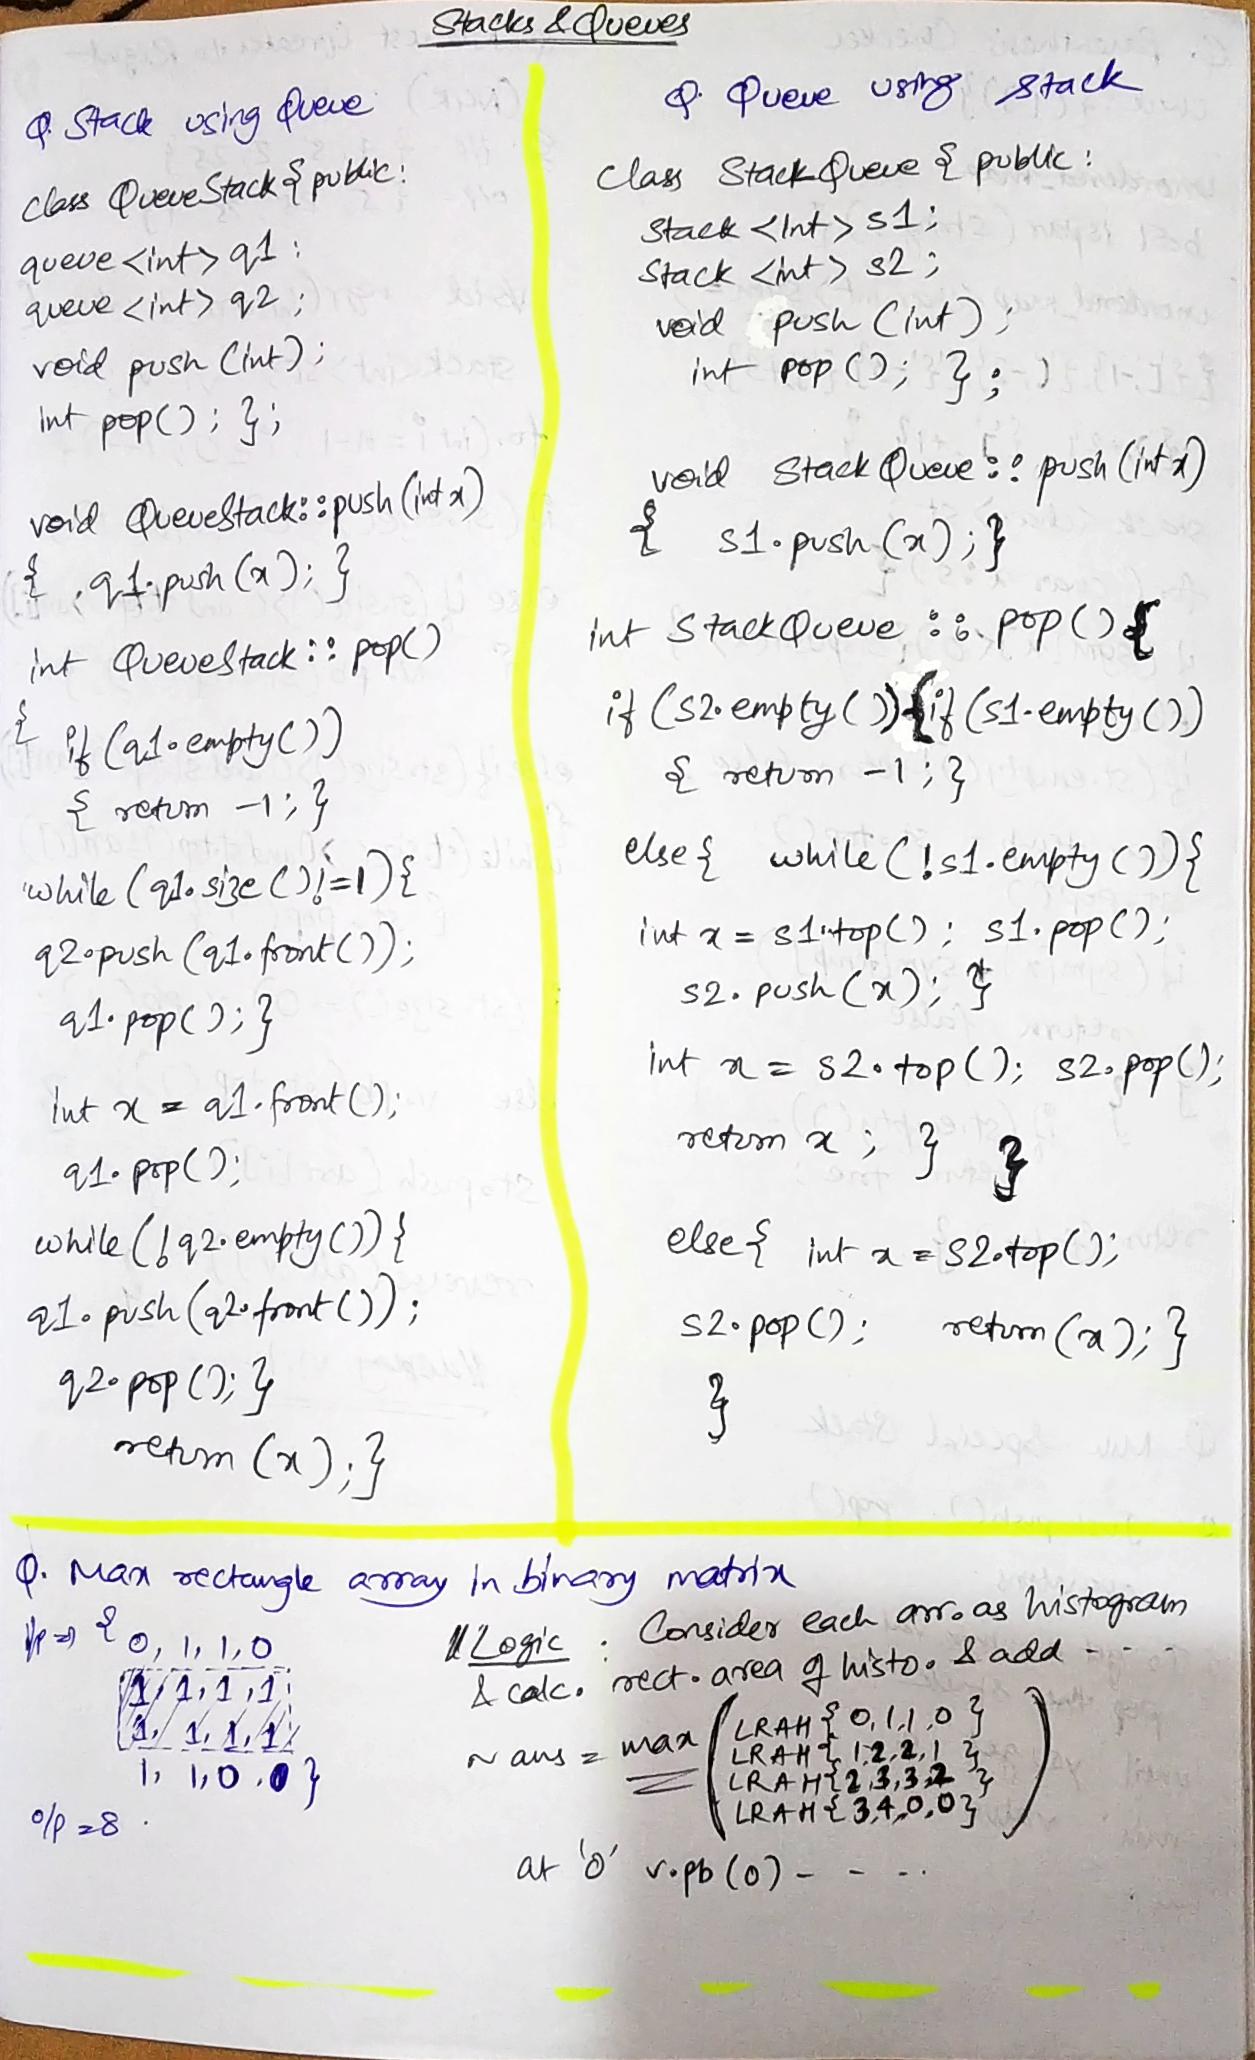 Stacks & Queues
Q. Stack using Queue
class QueueStack { public:
queue <int> q1 :
queue <int> q2 ;
void push (int) ;
int pop() ; } ;
void QueueStack::push (int x)
{ q1.push (x) ; }
int QueueStack :: pop()
{ if (q1.empty())
{ return -1 ; }
while (q1.size() != 1) {
q2.push (q1.front()) ;
q1.pop() ; }
int x = q1.front() ;
q1.pop() ;
while (!q2.empty()) {
q1.push (q2.front()) ;
q2.pop() ; }
return (x) ; }
Q. Queue using Stack
Class StackQueue { public :
Stack <Int> s1 ;
Stack <int> s2 ;
void push (int) ;
int pop () ; } ;
void StackQueue :: push (int x)
{ s1.push (x) ; }
int StackQueue :: pop () {
if (s2.empty()) { if (s1.empty())
{ return -1 ; }
else { while (!s1.empty()) {
int x = s1.top() ; s1.pop() ;
s2.push (x) ; }
int x = s2.top() ; s2.pop() ;
return x ; } }
else { int x = s2.top() ;
s2.pop() ; return (x) ; }
}
Q. Max rectangle array in binary matrix
i/p => { 0, 1, 1, 0
1, 1, 1, 1
1, 1, 1, 1
1, 1, 0, 0 }
o/p = 8
// Logic : Consider each arr. as histogram
& calc. rect. area of histo. & add - - -
~ ans = max ( LRAH { 0,1,1,0 }
LRAH { 1,2,2,1 }
LRAH { 2,3,3,2 }
LRAH { 3,4,0,0 } )
at '0' v.pb (0) - - - ..